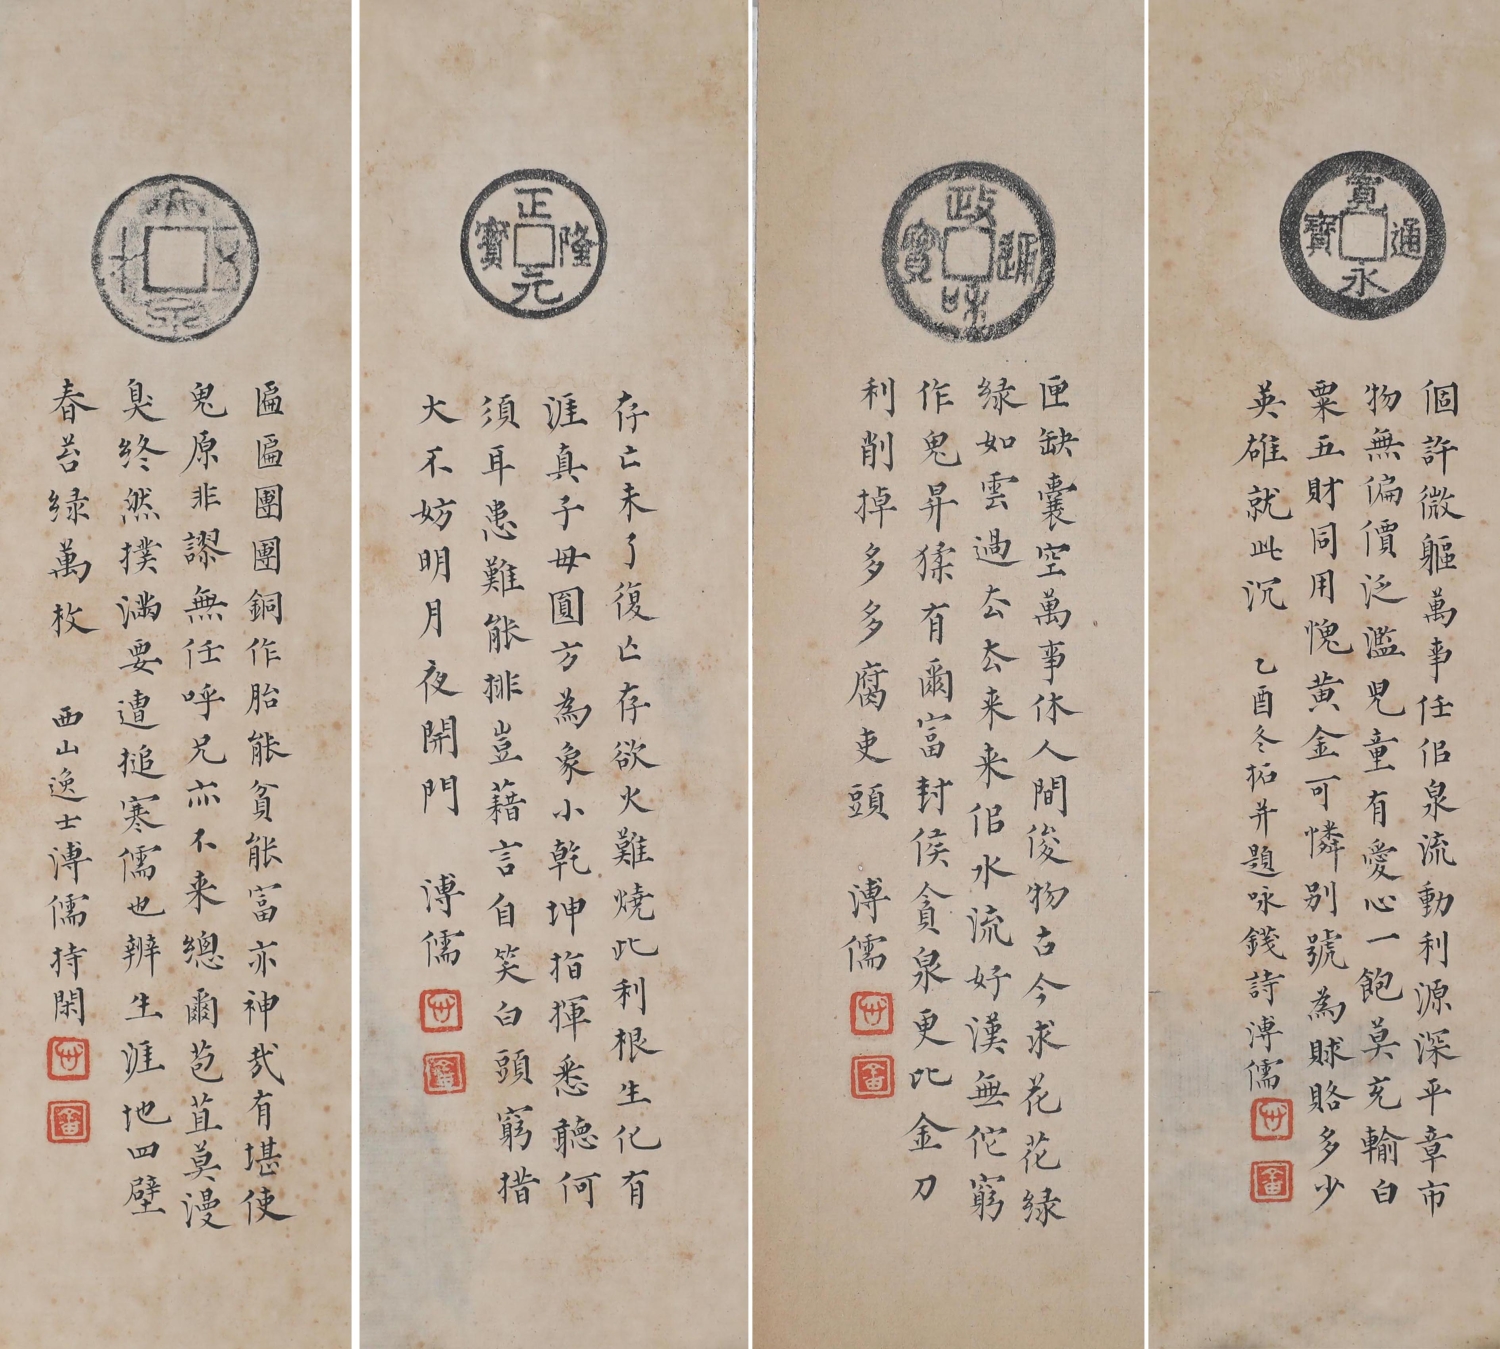 寬永通寶
個許微軀萬事任佀泉流動利源深平章市
物無偏價泛濫児童有愛心一飽莫充輸白
粟五財同用愧黄金可憐别號為賕賂多少
英雄就此沉 乙酉冬拓并題咏錢詩溥儒
政和通寶
匣缺囊空萬事休人間俊物古今求花花緑
緑如雲過去去来来佀水流好漢無佗窮
作鬼昇猱有爾富封侯貪泉更比金刀
利削掉多多腐吏頭 溥儒
正隆元寶
存亡未了復亡存欲火難燒此利根生化有
涯真子毋圓方為象小乾坤指揮悉聽何
須耳患難能排豈藉言自笑白頭窮措
大不妨明月夜開門 溥儒
匾匾團團銅作胎能貧能富亦神哉有堪使
鬼原非謬無任呼兄亦不来總爾苞苴莫漫
臭終然撲滿要遭搥寒儒也辦生涯地四壁
春苔緑萬枚 西山逸士溥儒持閑